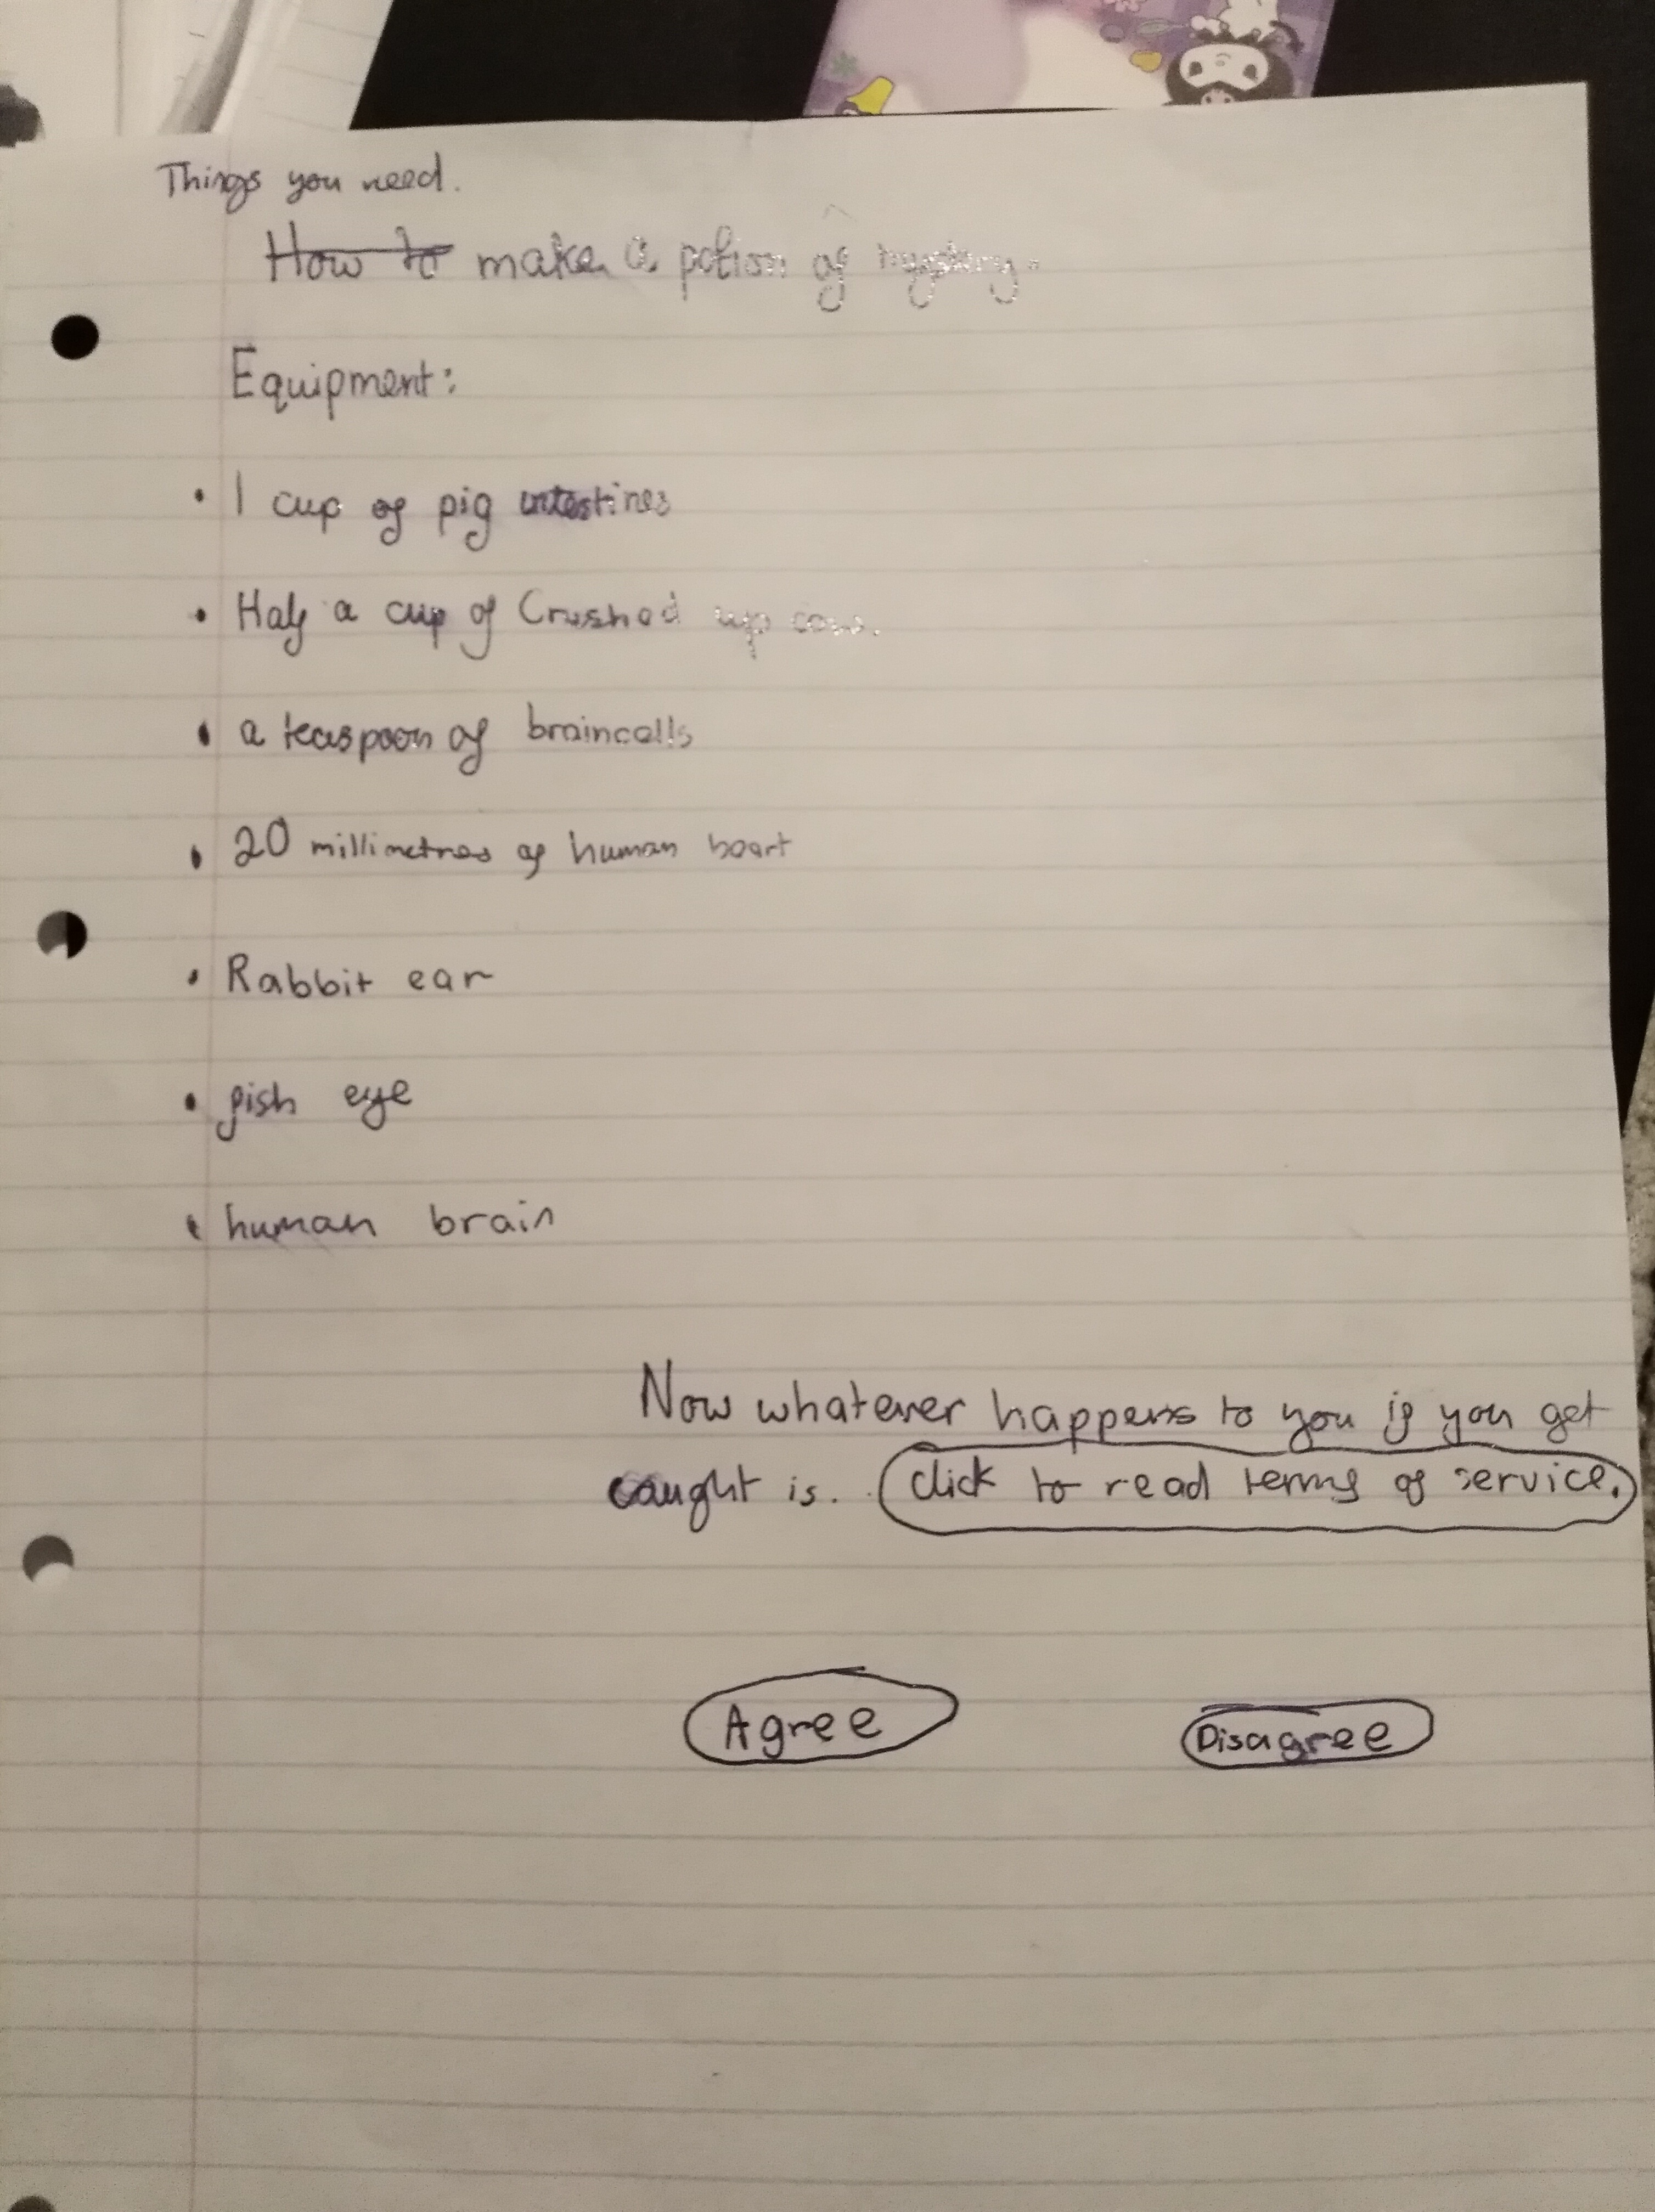 Things you need.
How to make a potion of mystery.
Equipment:
• 1 cup of pig intestines
• Half a cup of Crushed up cow.
• a teaspoon of braincells
• 20 millimetres of human heart
• Rabbit ear
• fish eye
• human brain
Now whatever happens to you if you get
caught is. click to read terms of service.
Agree Disagree